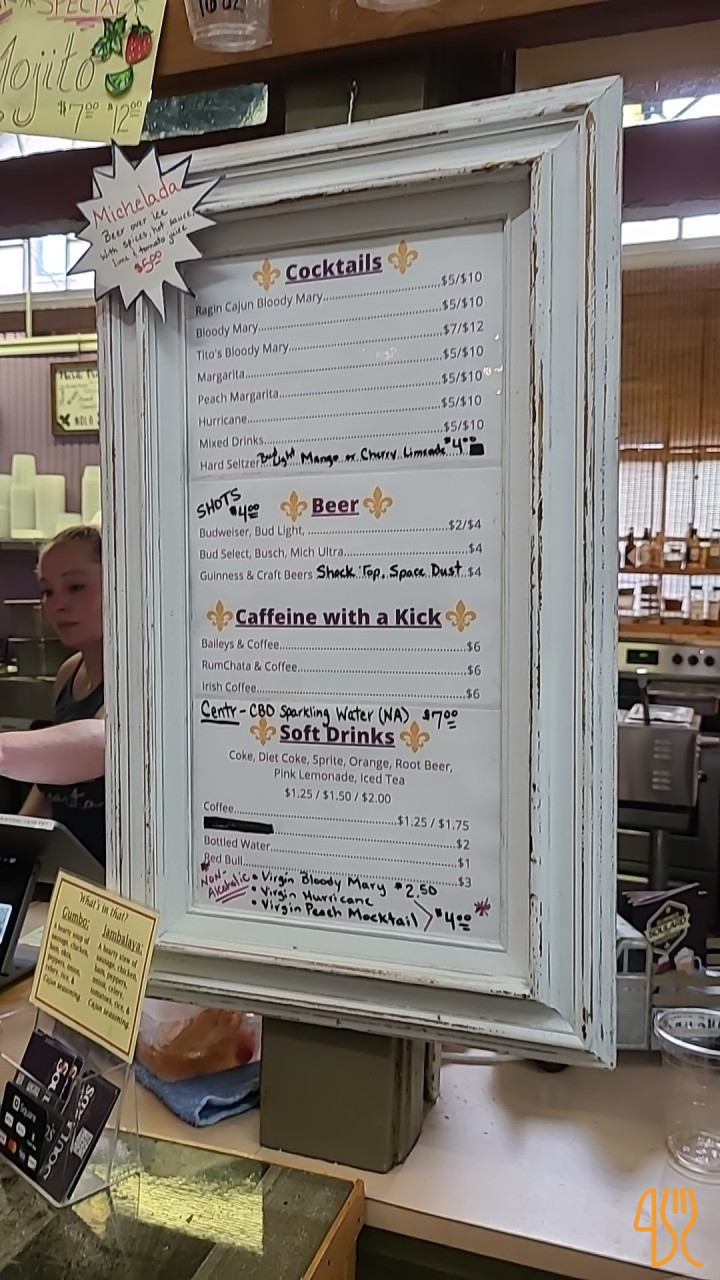 SPECIAL
Mojito
$7.00 $12.00
Michelada
Beer over ice
with spices, hot sauce,
lime & tomato juice
$5.00
Cocktails
Ragin Cajun Bloody Mary $5/$10
Bloody Mary $5/$10
Tito's Bloody Mary $7/$12
Margarita $5/$10
Peach Margarita $5/$10
Hurricane $5/$10
Mixed Drinks $5/$10
Hard Seltzer Bud Light Mango or Cherry Limeade $4.00
SHOTS
$4.00
Beer
Budweiser, Bud Light, $2/$4
Bud Select, Busch, Mich Ultra $4
Guinness & Craft Beers Shock Top, Space Dust $4
Caffeine with a Kick
Baileys & Coffee $6
RumChata & Coffee $6
Irish Coffee $6
Centr - CBD Sparkling Water (NA) $7.00
Soft Drinks
Coke, Diet Coke, Sprite, Orange, Root Beer,
Pink Lemonade, Iced Tea
$1.25 / $1.50 / $2.00
Coffee $1.25 / $1.75
$2
Bottled Water $1
Red Bull $3
* NON-Alcoholic
• Virgin Bloody Mary $2.50
• Virgin Hurricane
• Virgin Peach Mocktail $4.00 *
What's in that?
Gumbo:
A hearty soup of
sausage, chicken,
ham, okra,
peppers, onion,
celery, rice, &
Cajun seasoning.
Jambalaya:
A hearty stew of
sausage, chicken,
ham, peppers,
onion, celery,
tomatoes, rice, &
Cajun seasoning.
Square
SOULARD